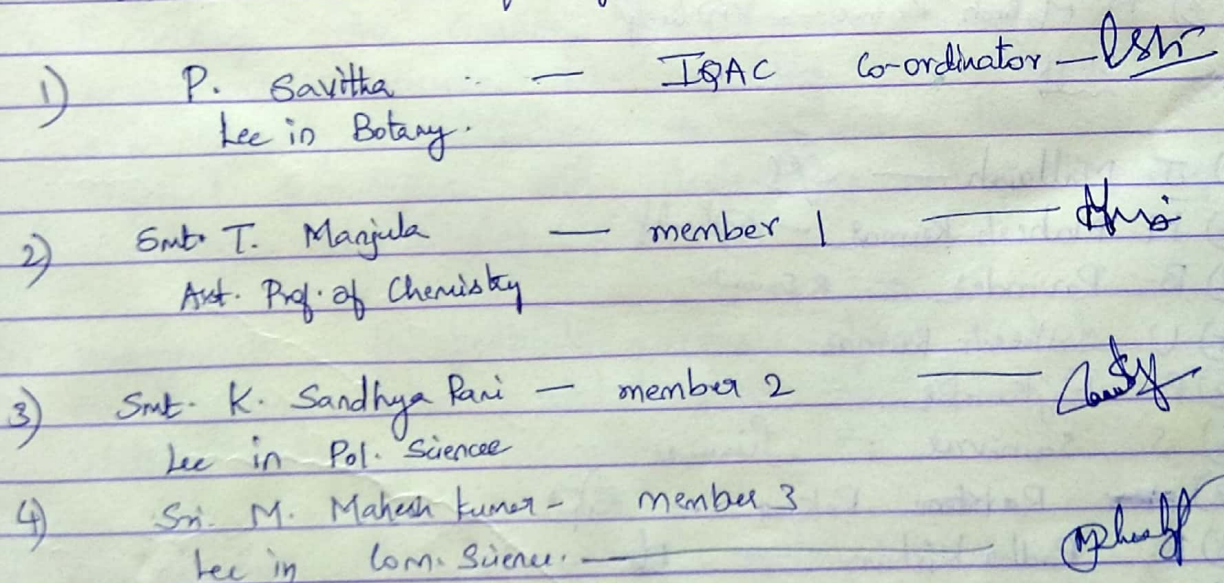 1) P. Savitha — IQAC Co-ordinator —
Lec in Botany.
2) Smt. T. Manjula — member 1 —
Asst. Prof. of Chemistry
3) Smt. K. Sandhya Rani — member 2 —
Lec in Pol. Sciencee
4) Sri. M. Mahesh Kumar - member 3
Lec in Com. Science. —